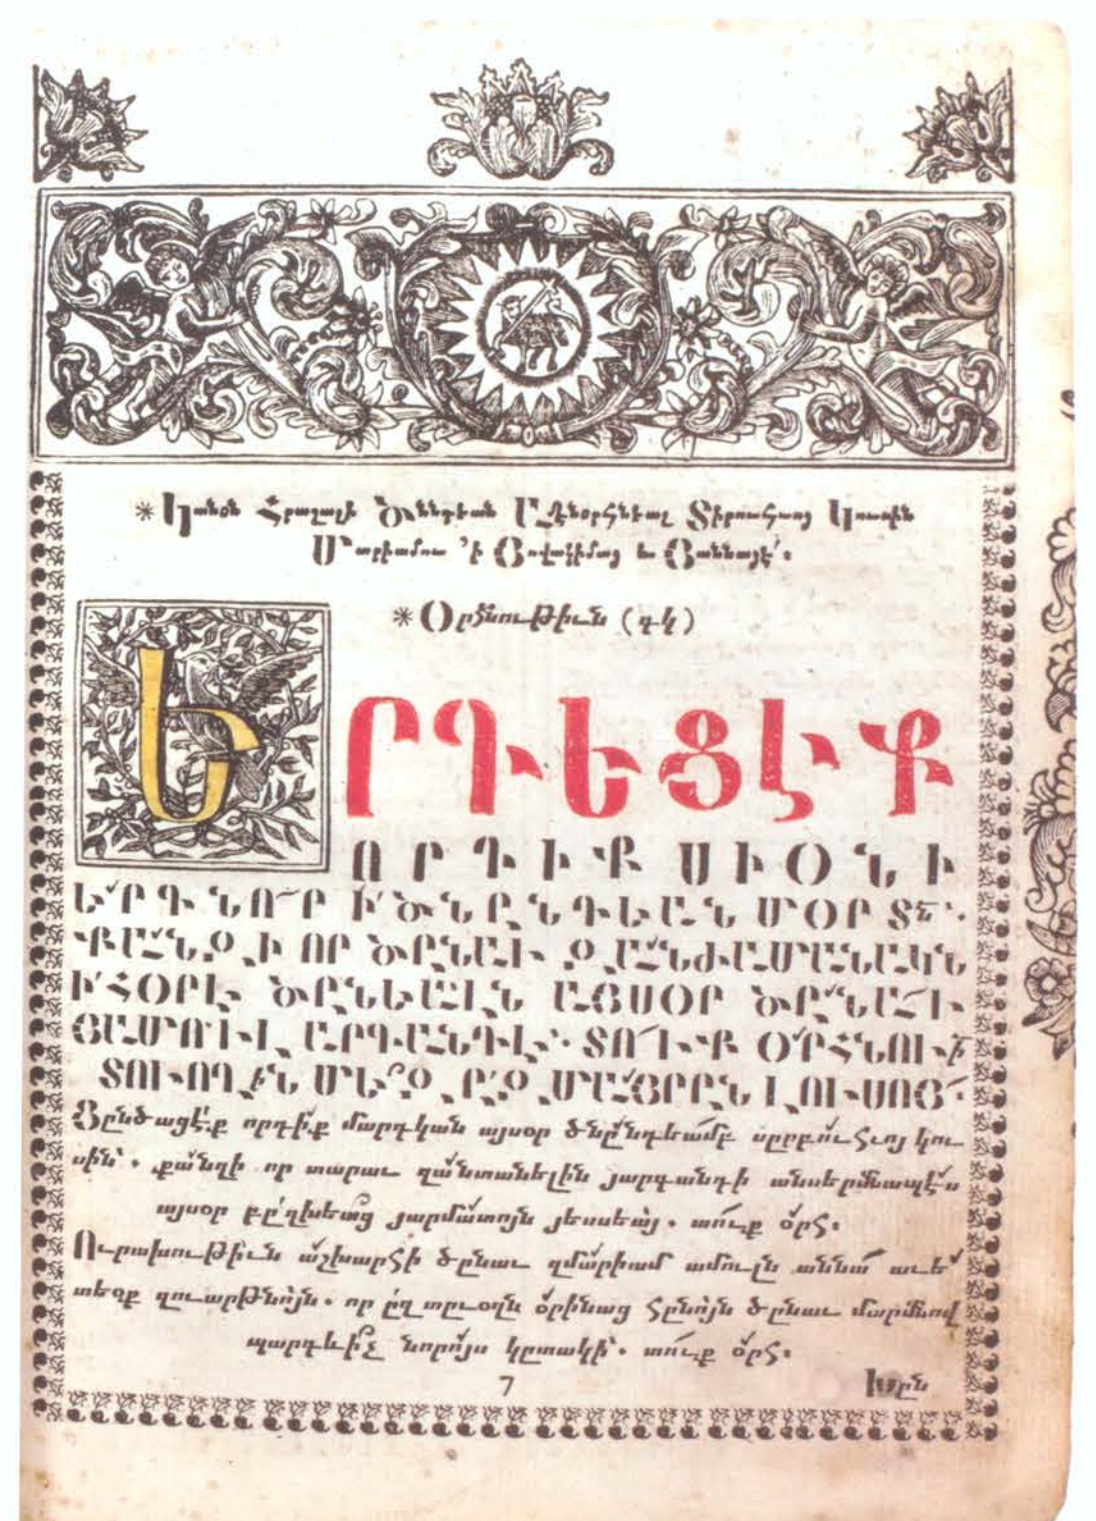 * Կանօն Հրաշալի Ծննդեան Ամենօրհնեալ Տիրուհւոյ Կուսին
Մարիամու ՚ի Յովակիմայ և Յաննայէ՛.
* Օրհնութիւն (գկ)
ԵՐԳԵՑԷՔ
ՈՐԴԻՔ ՍԻՕՆԻ
ԵՐԳ ՆՈՐ Ի ԾՆԸՆԴԵԱՆ ՄՕՐ ՏՆ.
ՔԱՆԶԻ ՈՐ ԾԸՆԱՒ ԶԱՆԺԱՄԱՆԱԿՆ
Ի ՀՕՐԷ ԾԸՆԵԱԼՆ ԱՅՍՕՐ ԾԸՆԱՒ
ՅԱՄՈՒԼ ԱՐԳԱՆԴԷ. ՏՈՒՔ ՕՐՀՆՈՒԻ
ՏՈՒՈՂԻՆ ՄԵԶ ԸԶՄԱՅՐԸՆ ԼՈՒՍՈՅ
Ցընծացէք որդիք մարդկան այսօր ծնընդեամբ սրբուհւոյ կու
սին. քանզի որ տարաւ զանտանելին յարգանդի անսերմնապէս
այսօր բըղխեաց յարմատոյն յեսսեայ. տուք օրհ.
Ուրախութիւն աշխարհի ծընաւ զմարիամ ամուլն աննա աւե
տեօք զուարթնոյն. որ ըղտրւօղն օրինաց հընոյն ծընաւ մարմնով
պարգևիչ նորոյս կըտակի. տուք օրհ.
7
Խորն